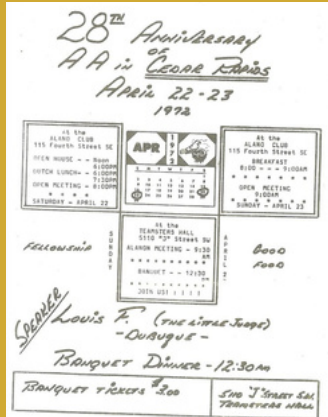 28TH ANNIVERSARY
OF
AA IN CEDAR RAPIDS
APRIL 22-23
1972
At the
ALANO CLUB
115 Fourth Street SE
OPEN HOUSE -- Noon
DUTCH LUNCH-
OPEN MEETING - 8:00PM
SATURDAY - APRIL 22
APR
1972
At the
ALANO CLUB
115 Fourth Street SE
BREAKFAST
8:00 --- 9:00AM
OPEN MEETING
9:00AM
SUNDAY - APRIL 23
FELLOWSHIP
SUNDAY
At the
TEAMSTERS HALL
ALANON MEETING - 9:30
BANQUET -- 12:30
JOIN US!
APRIL
GOOD
FOOD
SPEAKER
LOUIS F. (THE LITTLE JUDGE)
- DUBUQUE -
BANQUET DINNER - 12:30
BANQUET TICKETS $3.00
5110 "J" STREET S.W.
TEAMSTERS HALL